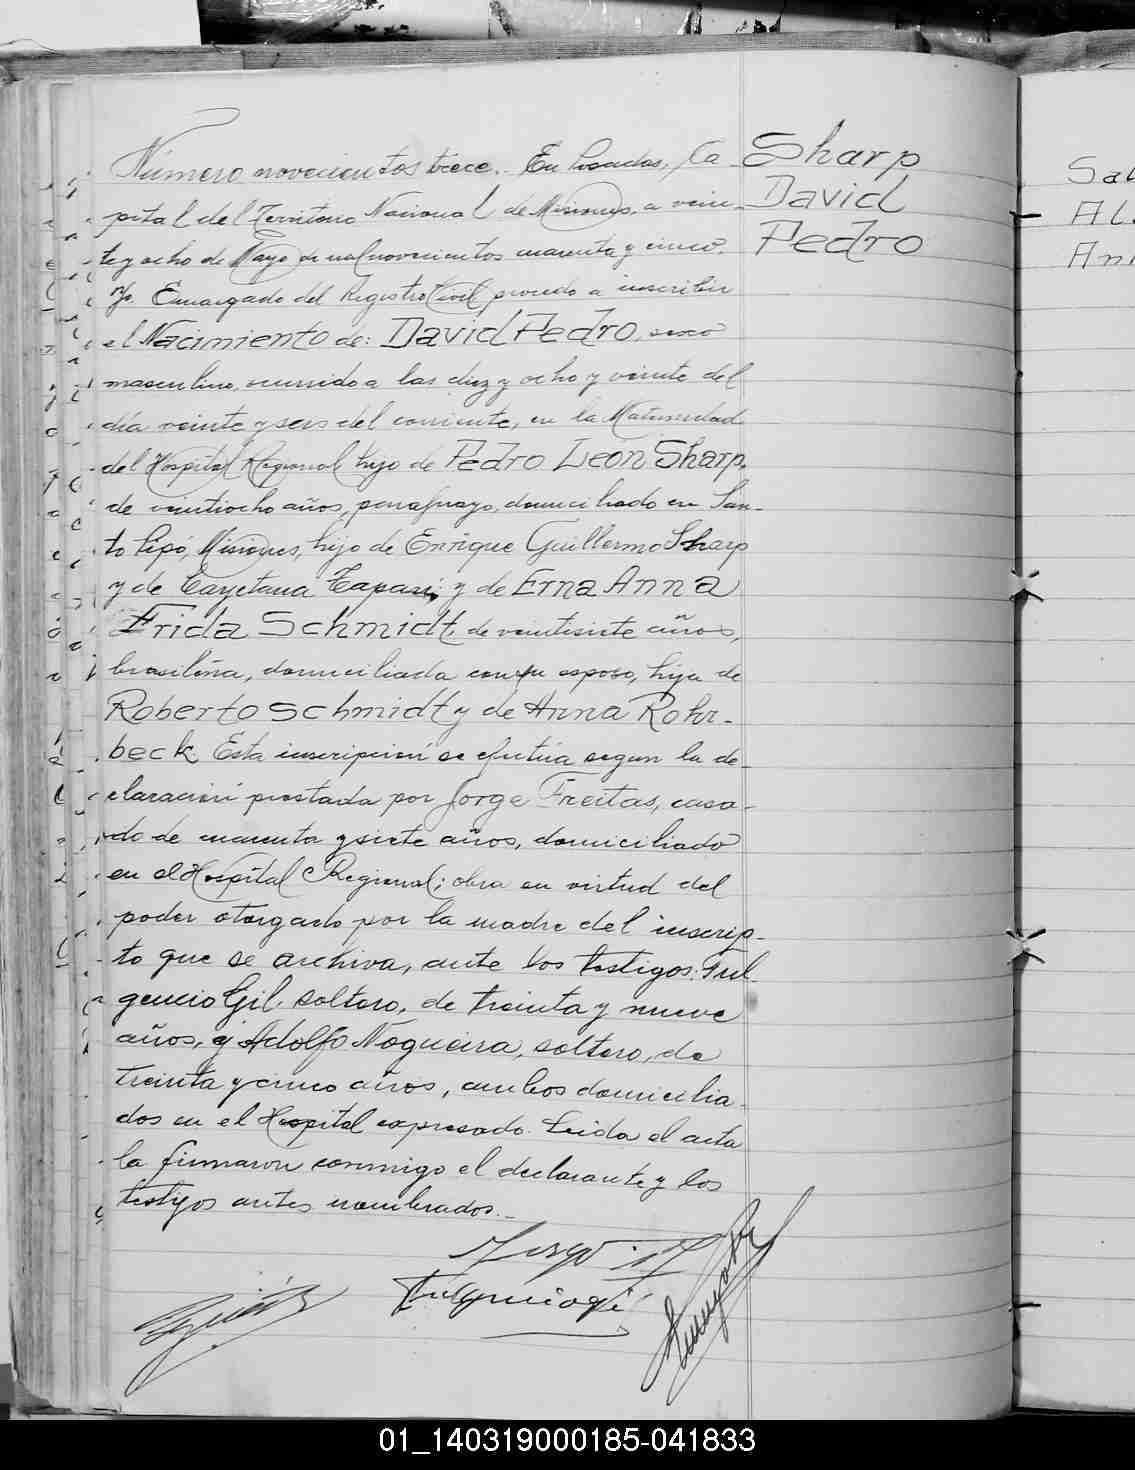 Número novecientos trece.. En Posadas, Ca-
pital del Territorio Nacional de Misiones, a vein-
te y ocho de Mayo de mil novecientos cuarenta y cinco.
Yo Encargado del Registro Civil procedo a inscribir
el Nacimiento de: David Pedro, sexo
masculino, ocurrido a las diez y ocho y veinte del
día veinte y seis del corriente, en la Maternidad
del Hospital Regional hijo de Pedro Leon Sharp,
de veintiocho años, paraguayo, domiciliado en San-
to Pipó, Misiones, hijo de Enrique Guillermo Sharp
y de Cayetana y de Erna Anna
Frida Schmidt, de veintisiete años,
brasileña, domiciliada con su esposo, hija de
Roberto Schmidt y de Anna Rohr-
beck. Esta inscripción se efectúa segun la de-
claración prestada por Jorge Freitas, casa-
do de cuarenta y siete años, domiciliado
en el Hospital Regional; obra en virtud del
poder otorgado por la madre del inscrip-
to que se archiva, ante los testigos: Ful-
gencio Gil, soltero, de treinta y nueve
años, y Adolfo Nogueira, soltero, de
treinta y cinco años, ambos domicilia-
dos en el Hospital expresado. Leida el acta
la firmaron conmigo el declarante y los
testigos antes nombrados.-
Sharp
David
Pedro
Fulgencio Gil
Sal
Al
An
01_140319000185-041833